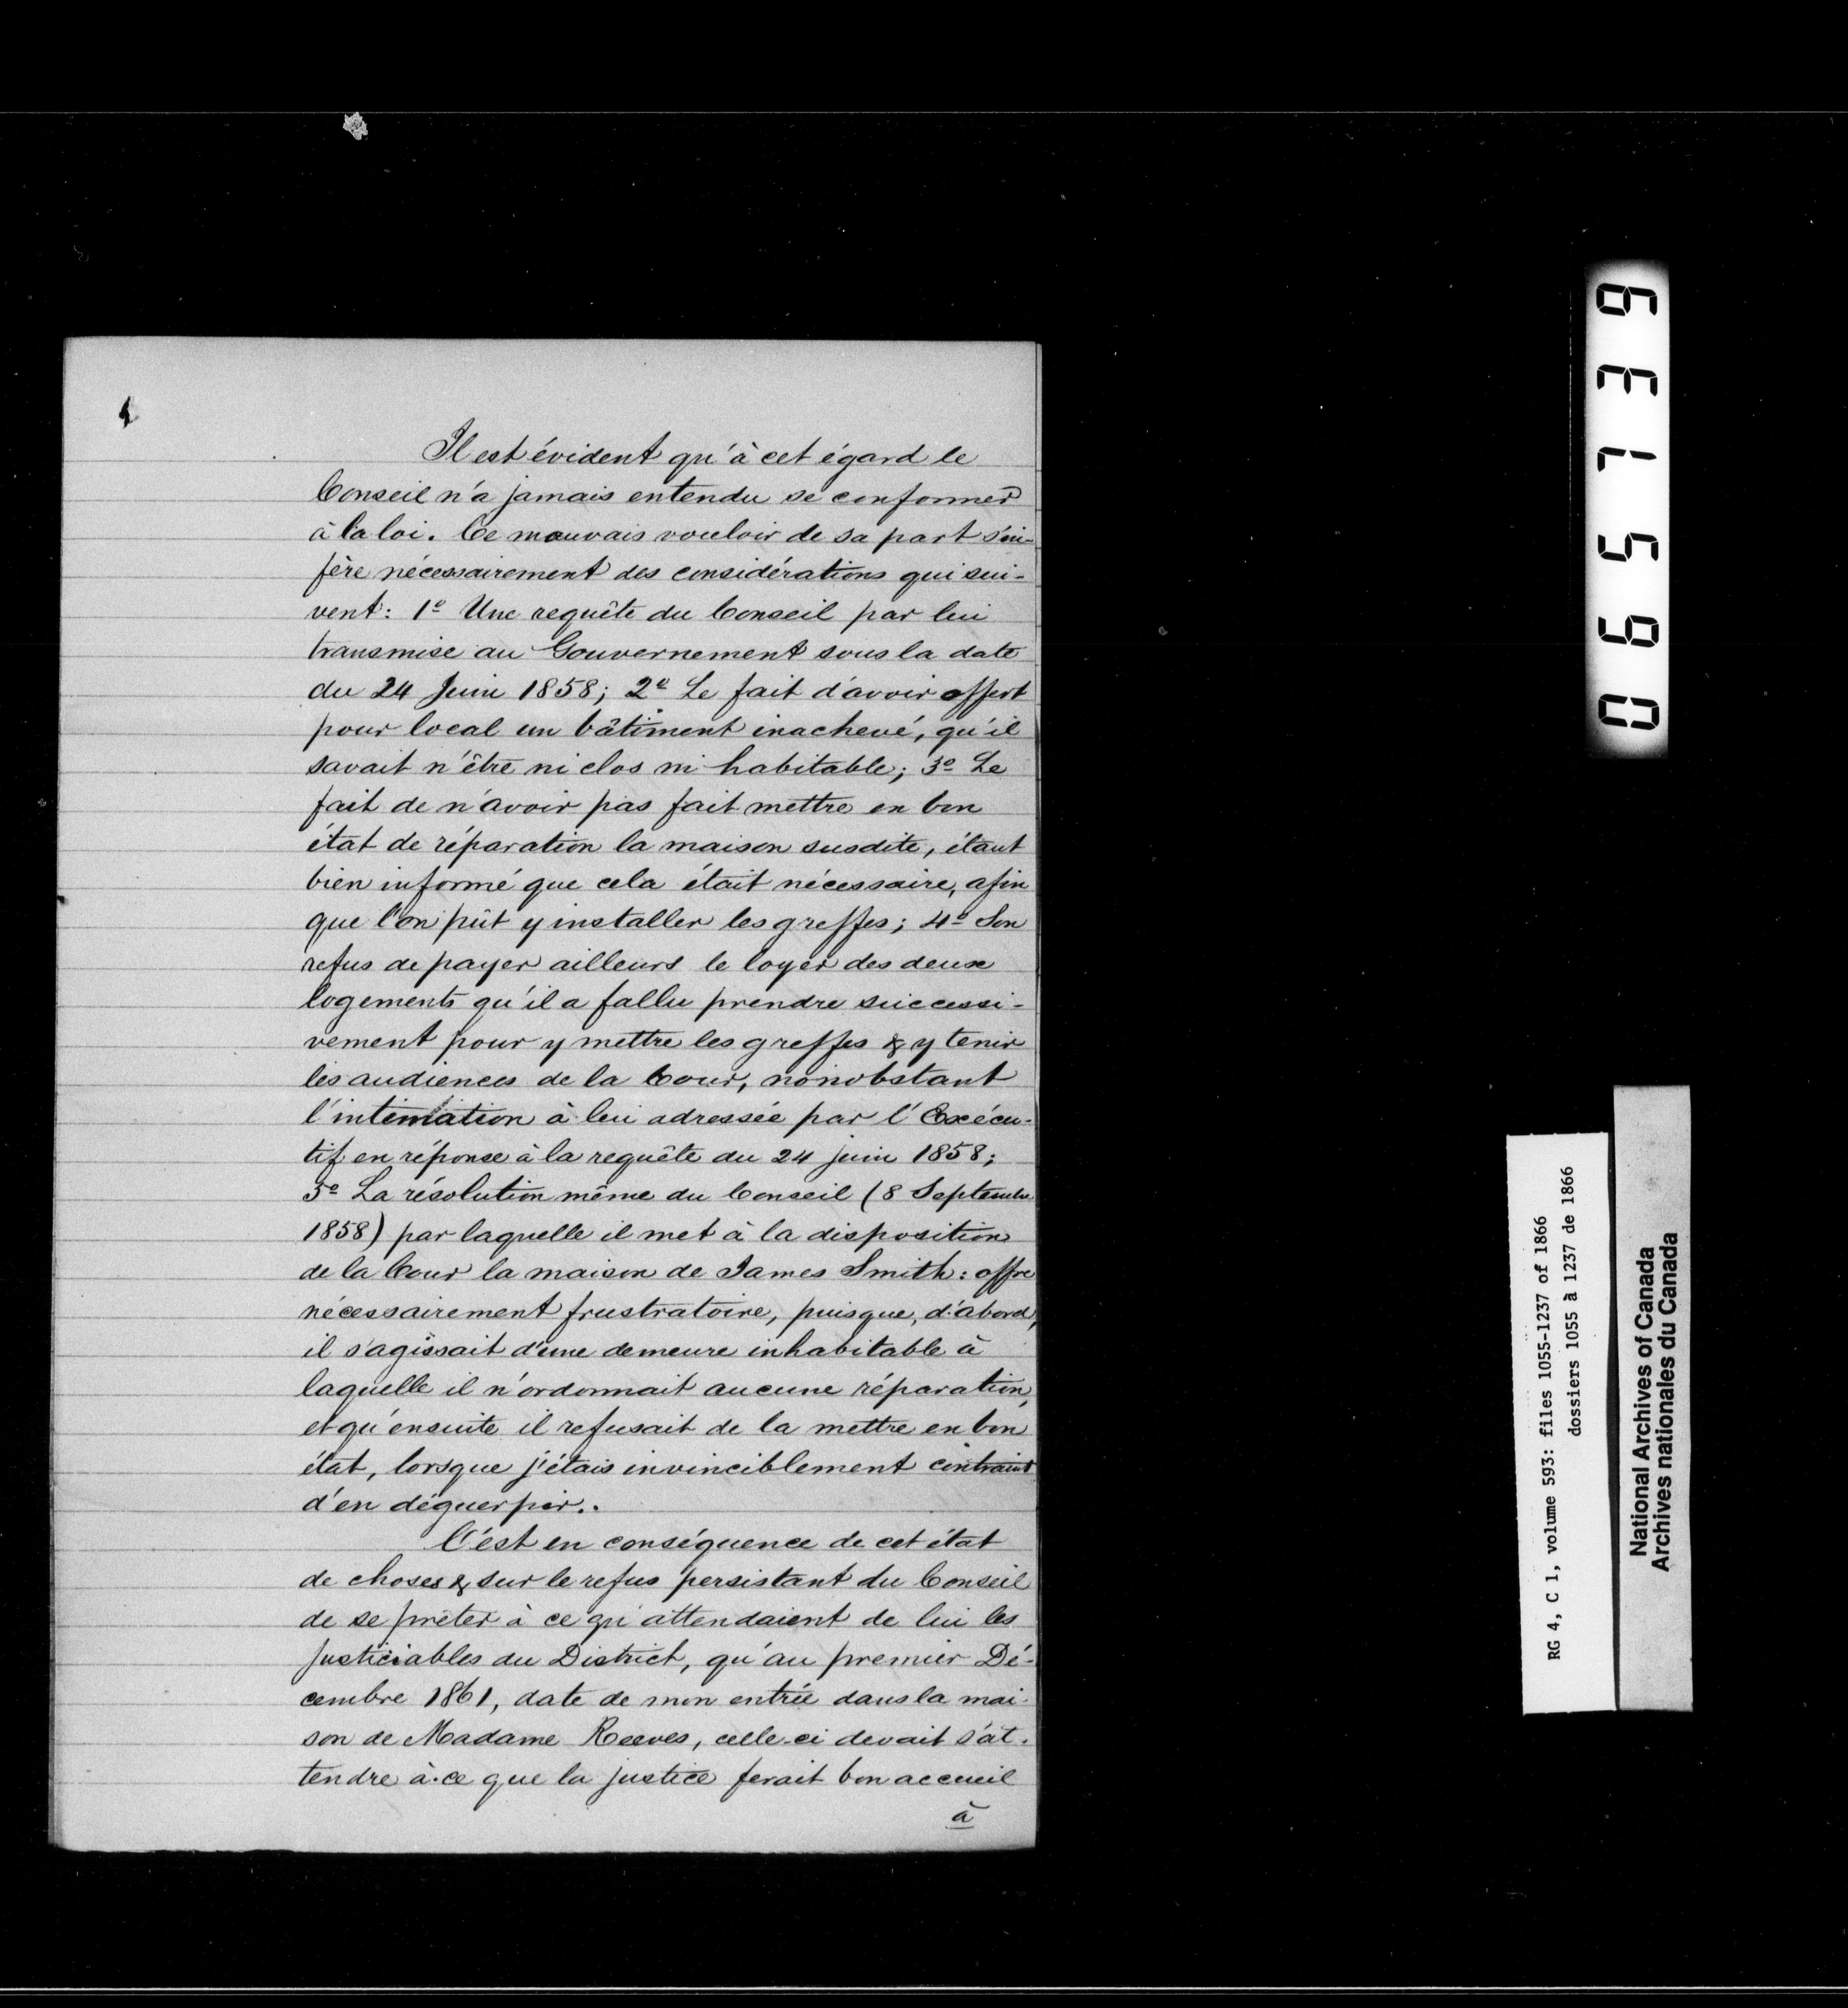 Il est évident qu'à cet égard le
Conseil n'a jamais entendu se conformer
à la loi. Ce mauvais vouloir de sa part s'in-
fère nécessairement des considérations qui sui-
vent: 1º Une requête du Conseil par lui
transmise au Gouvernement sous la date
du 24 Juin 1858; 2º Le fait d'avoir offert
pour local un bâtiment inachevé, qu'il
savait n'être ni clos ni habitable; 3º Le
fait de n'avoir pas fait mettre en bon
état de réparation la maison susdite, étant
bien informé que cela était nécessaire, afin
que l'on pût y installer les greffes; 4º Son
refus de payer ailleurs le loyer des deux
logements qu'il a fallu prendre successi-
vement pour y mettre les greffes & y tenir
les audiences de la Cour, nonobstant
l'intimation à lui adressée par l'Exécu-
tif en réponse à la requête du 24 juin 1858;
5º La résolution même du Conseil (8 Septembre
1858) par laquelle il met à la disposition
de la Cour la maison de James Smith: offre
nécessairement frustratoire, puisque, d'abord,
il s'agissait d'une demeure inhabitable à
laquelle il n'ordonnait aucune réparation,
et qu'ensuite il refusait de la mettre en bon
état, lorsque j'étais invinciblement contraint
d'en déguerpir..
C'est en conséquence de cet état
de choses & sur le refus persistant du Conseil
de se prêter à ce qu'attendaient de lui les
justiciables du District, qu'au premier Dé-
cembre 1861, date de mon entrée dans la mai-
son de Madame Reeves, celle-ci devait s'at-
tendre à ce que la justice ferait bon accueil
à
065139
RG 4, C 1, volume 593: files 1055-1237 of 1866
dossiers 1055 à 1237 de 1866
National Archives of Canada
Archives nationales du Canada